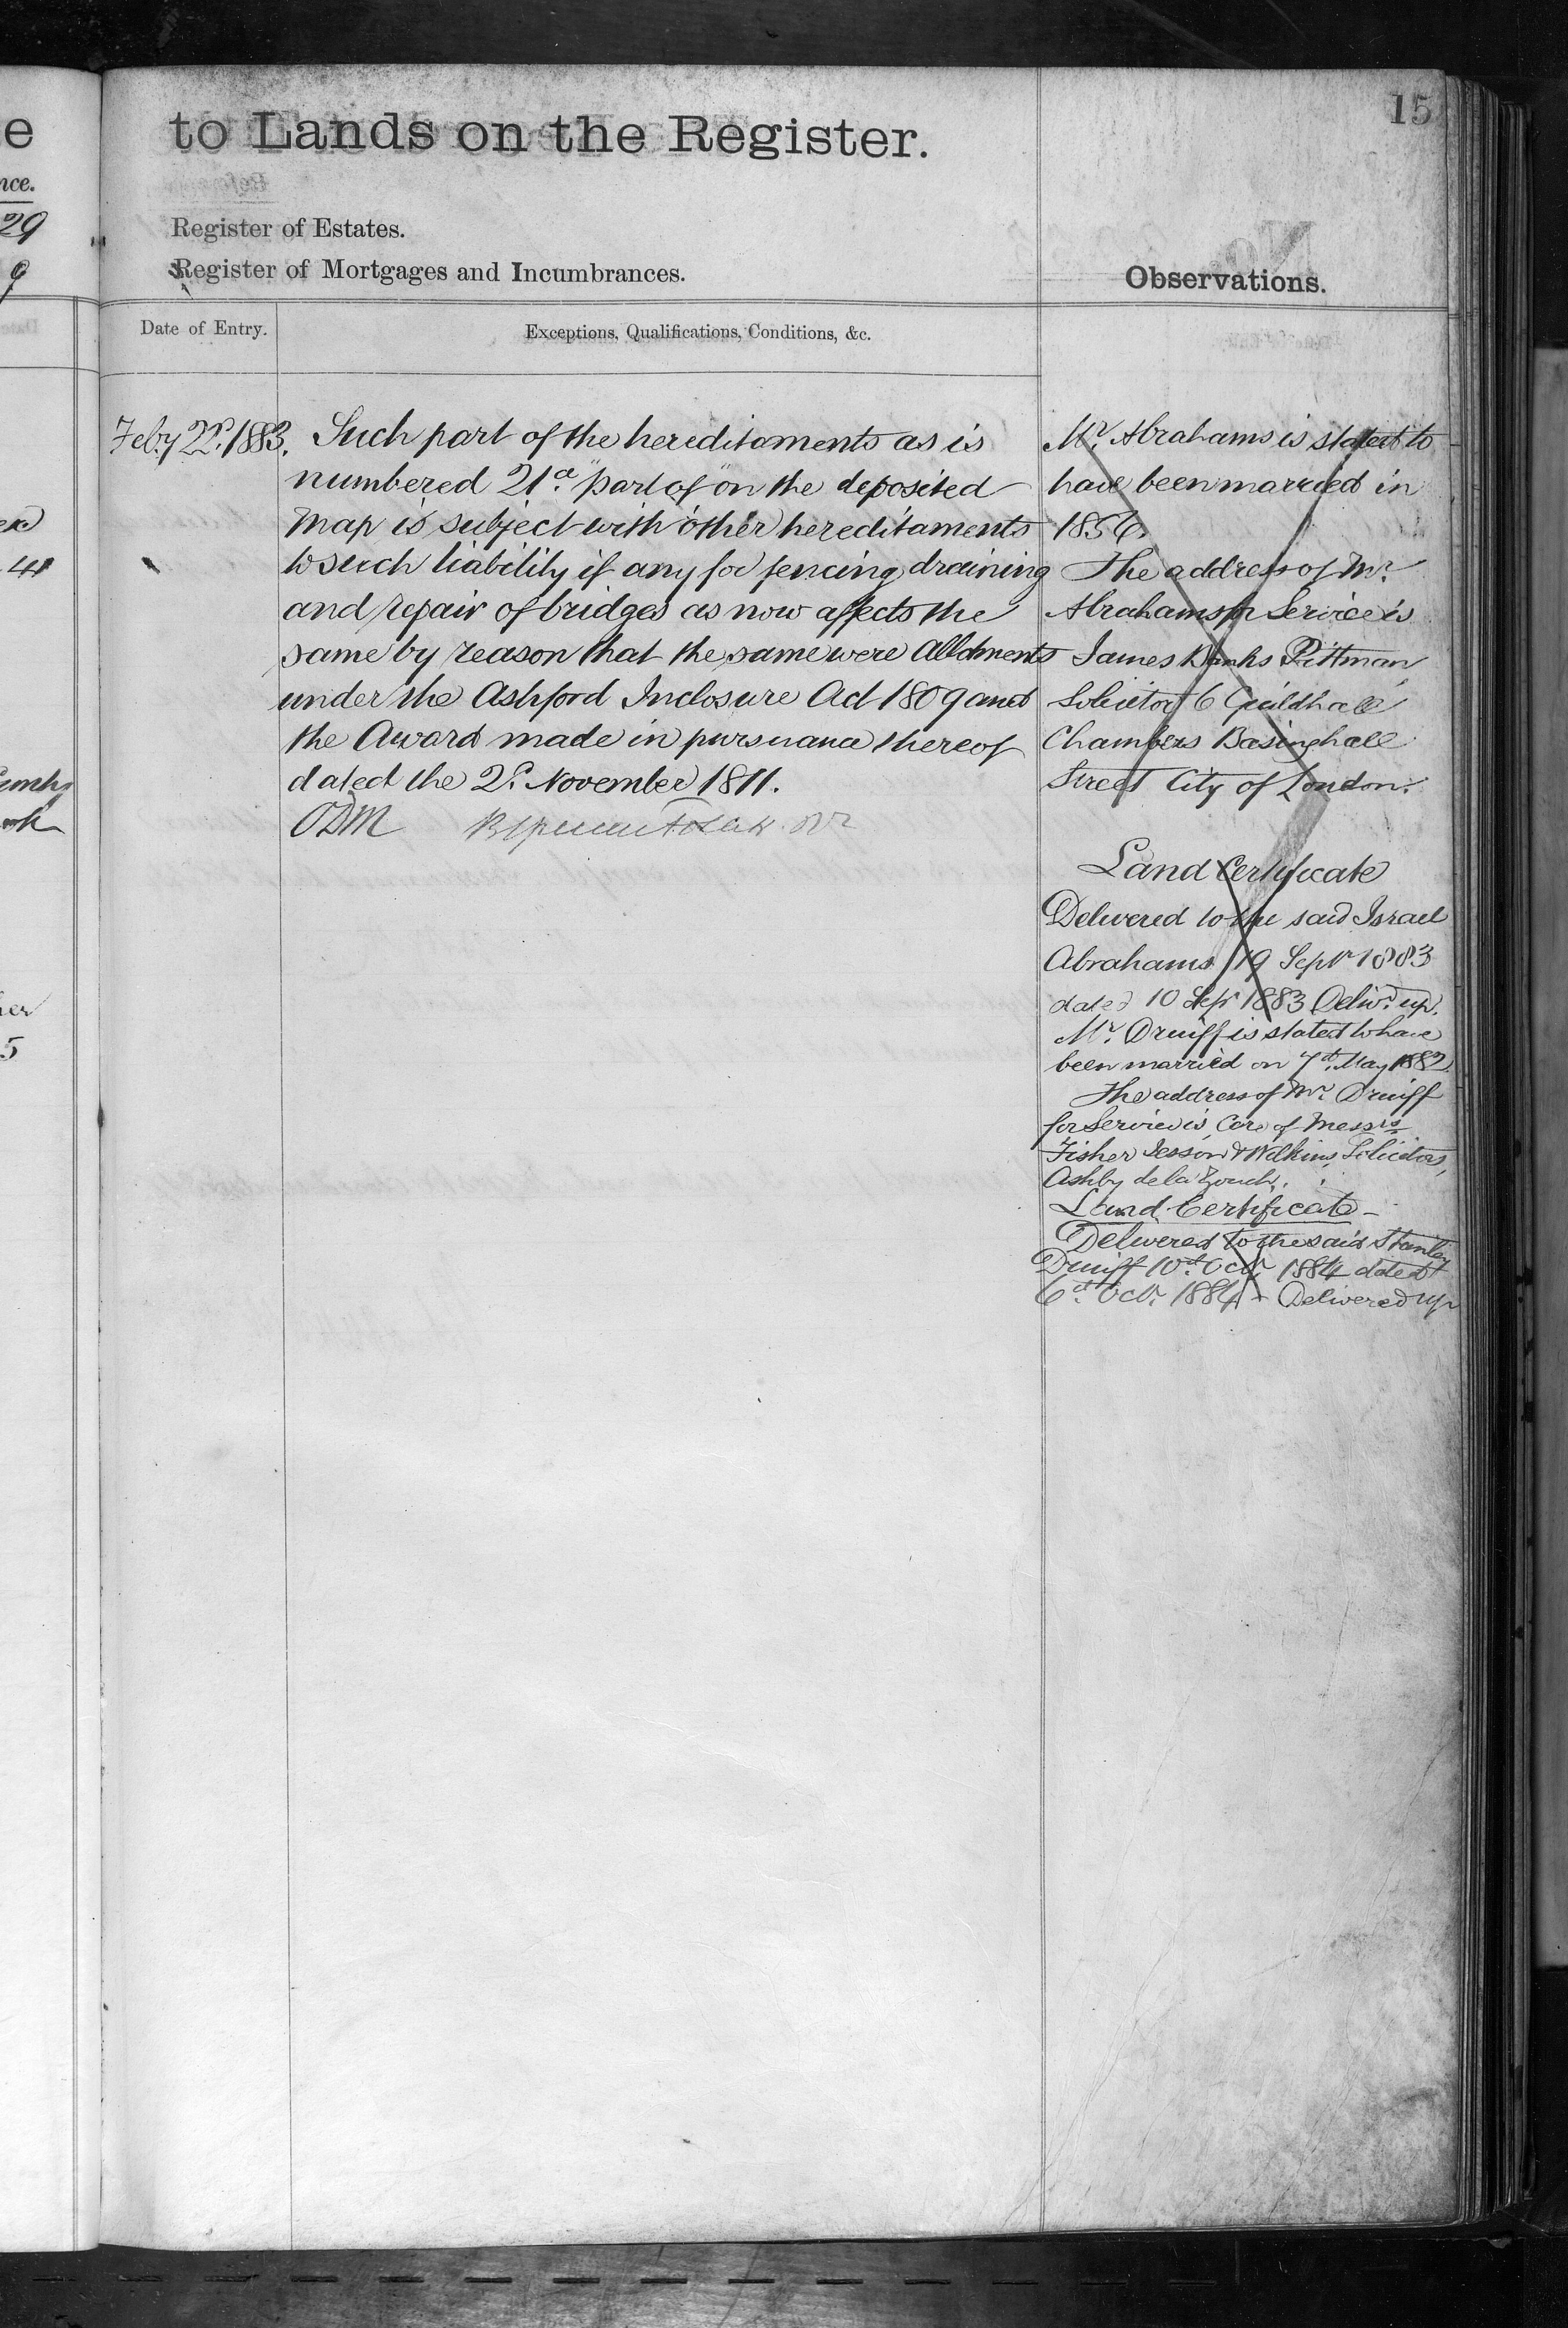 e
nce.
29
9
41
ok
her
5
15
to Lands on the Register.
Register of Estates.
Register of Mortgages and Incumbrances.
Observations.
Date of Entry.
Exceptions, Qualifications, Conditions, &c.
Feby 2d. 1883.
Such part of the hereditaments as is
numbered 21a. "part of" on the deposited
map is subject with other hereditaments
to such liability if any for fencing, draining
and repair of bridges as now affects the
same by reason that the same were Allotments
under the Ashford Inclosure Act 1809 and
the Award made in pursuance thereof
dated the 2d. November 1811.
ODM
Mr. Abrahams is stated to
have been married in
1856.
The address of Mr.
Abrahams for Service is
James Banks Pittman,
Solicitor, 6 Guildhall
Chambers Basinghall
Street City of London.
Land Certificate
Delivered to the said Israel
Abrahams 19 Septr 1883
dated 10 Sepr 1883 Delivd. up.
Mr. Druiff is stated to have
been married on 7th. May 1882.
The address of Mr. Druiff
for Service is, Care of Messrs.
Fisher Jesson & Wilkins, Solicitors,
Ashby de la Zouch.
Land Certificate -
Delivered to the said Stanley
Druiff 10th. Octr. 1884 dated
6th. Octr. 1884 - Delivered up